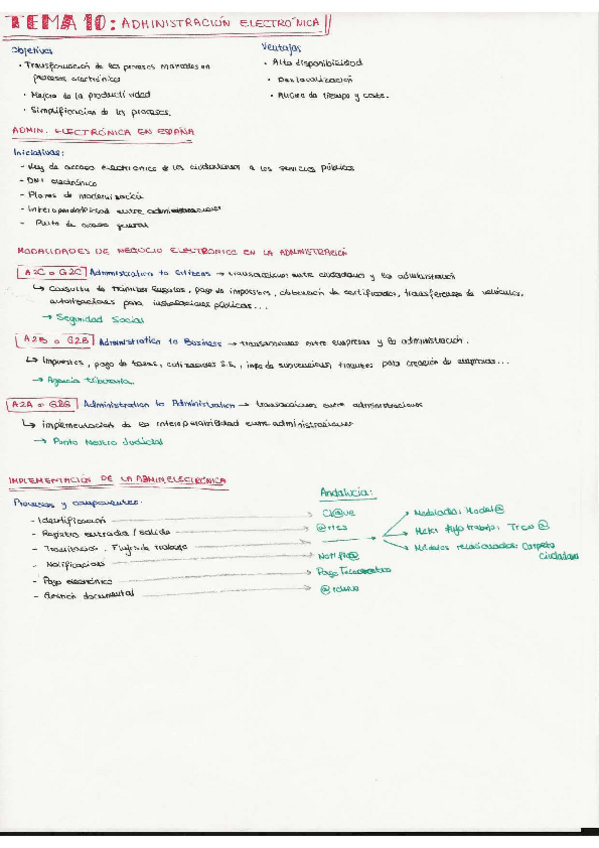 TEMA 10: ADMINISTRACIÓN ELECTRÓNICA
Objetivos
· Transformación de los procesos manuales en
procesos electrónicos
· Mejora de la productividad
· Simplificación de los procesos.
Ventajas
· Alta disponibilidad
· Deslocalización
· Ahorro de tiempo y coste.
ADMIN. ELECTRÓNICA EN ESPAÑA
Iniciativas:
- Ley de acceso electrónico de los ciudadanos a los servicios públicos
- DNI electrónico
- Planes de modernización
- Interoperabilidad entre administraciones
- Punto de acceso general
MODALIDADES DE NEGOCIO ELECTRÓNICO EN LA ADMINISTRACIÓN
A2C o G2C Administration to Citizens → transacciones entre ciudadanos y la administración
↳ Consulta de trámites legales, pago de impuestos, obtención de certificados, transferencia de vehículos,
autorizaciones para instalaciones públicas...
→ Seguridad Social
A2B o G2B Administration to Business → transacciones entre empresas y la administración.
↳ Impuestos, pago de tasas, cotizaciones S.S., de subvenciones, trámites para creación de empresas...
→ Agencia tributaria.
A2A o G2G Administration to Administration → transacciones entre administraciones
↳ implementación de la interoperabilidad entre administraciones
→ Punto Neutro Judicial
IMPLEMENTACIÓN DE LA ADMIN.ELECTRÓNICA
Procesos y componentes.
Andalucía:
- Identificación → Cl@ve
- Registro entrada / salida → @ries
- Tramitación. Flujos de trabajo →
→ Modelado: Model@
→ Motor flujo trabajo: Trew@
→ Módulos relacionados: Carpeta
ciudadana
- Notificaciones → Notific@
- Pago electrónico → Pago Telemático
- Gestión documental → @rchiva